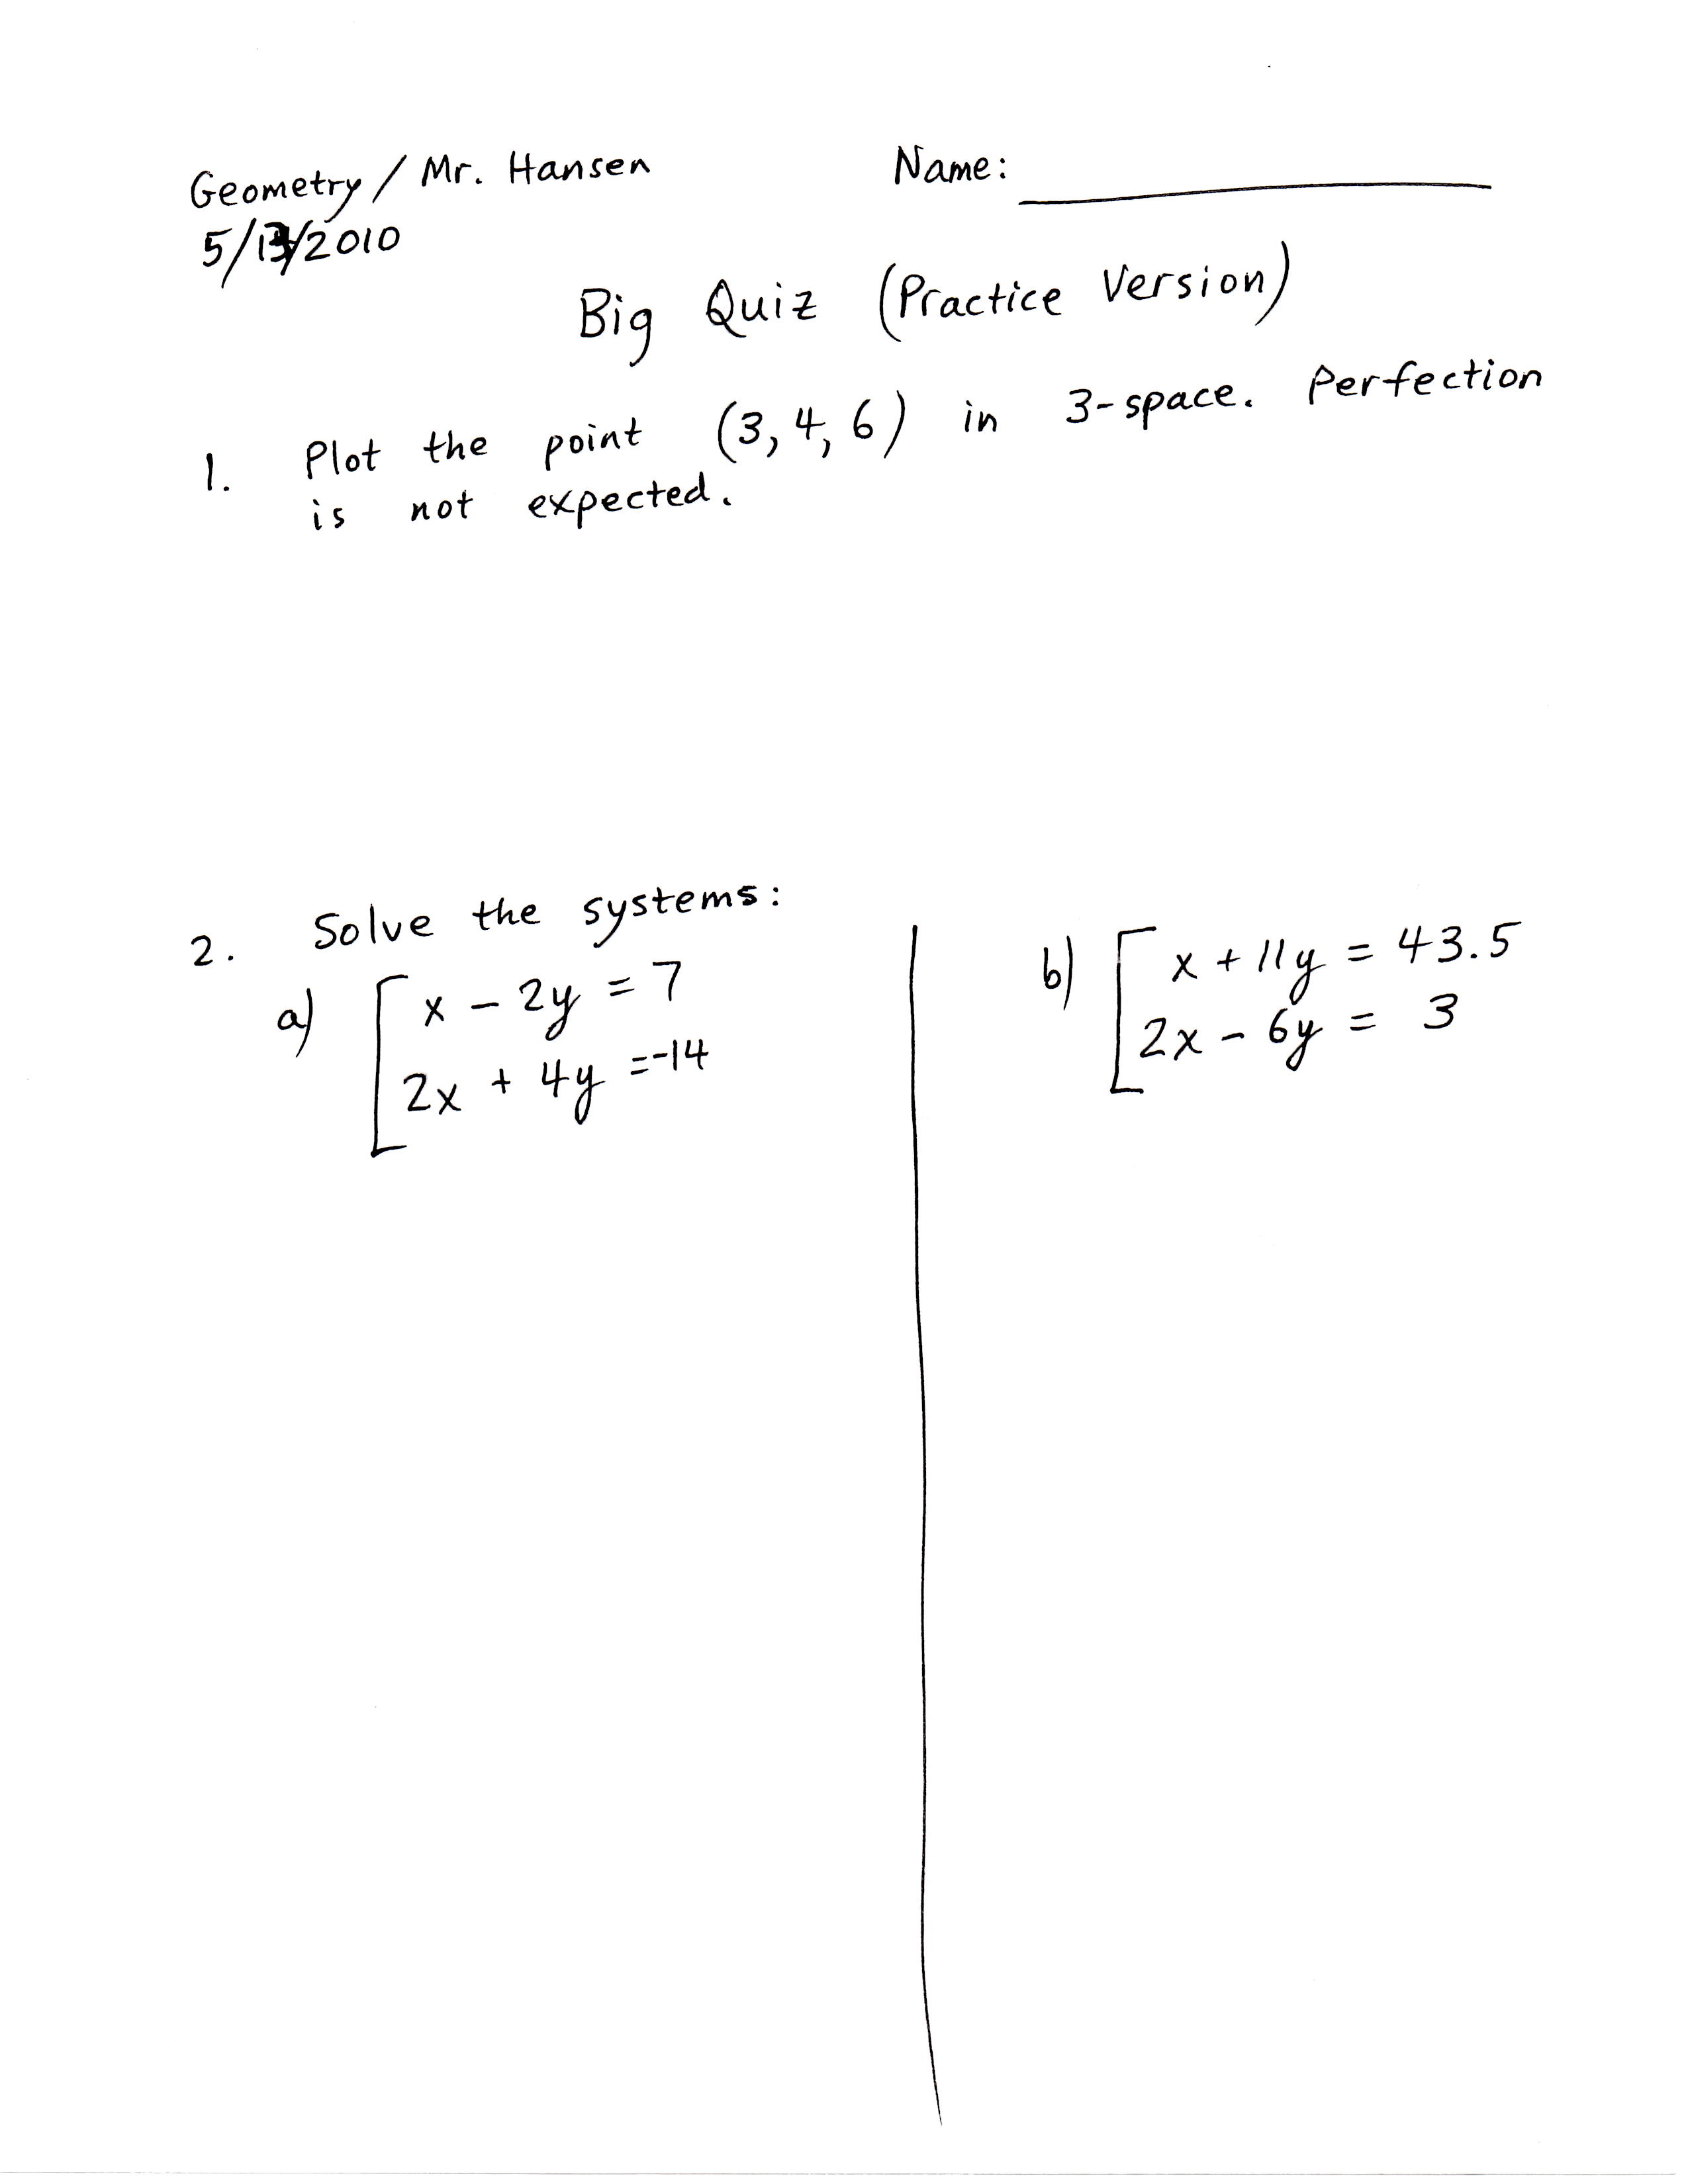 Geometry / Mr. Hansen
Name:
5/13/2010
Big Quiz (Practice Version)
1. Plot the point (3, 4, 6) in 3-space. Perfection
is not expected.
2. Solve the systems:
a) [ x - 2y = 7
2x + 4y = -14
b) [ x + 11y = 43.5
2x - 6y = 3